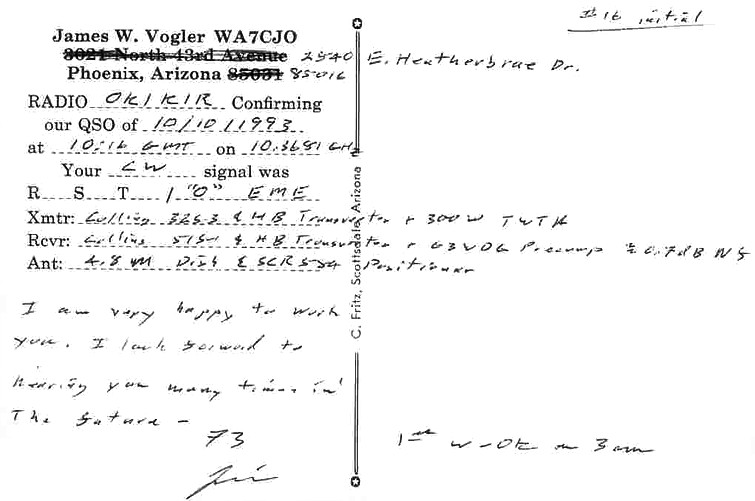 #16 initial
James W. Vogler WA7CJO
3021 North 43rd Avenue 2540 E. Heatherbrae Dr.
Phoenix, Arizona 85031 85016
RADIO OK1KIR Confirming
our QSO of 10/10/1993
at 10:16 GMT on 10.3681 GHz
Your CW signal was
R S T / "O" EME
Xmtr: Collins 32S-3 & HB Transverter + 300W TWTA
Rcvr: Collins 51S-1 & HB Transverter + G3WDG Preamp 0.7dB NF
Ant: 4.8 M Dish & SCR 584 Positioner
I am very happy to work
you. I look forward to
hearing you many times in
The future -
73
Jim
1st W-OK on 3cm
C. Fritz, Scottsdale, Arizona